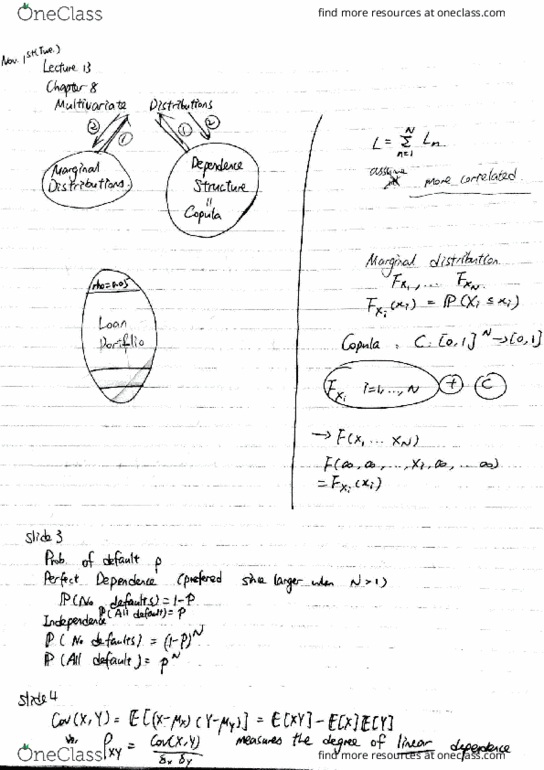 OneClass
find more resources at oneclass.com
Nov. 1st (Tue.)
Lecture 13
Chapter 8
Multivariate Distributions
② ① ① ②
Marginal
Distributions.
Dependence
Structure
=
Copula
rho=0.05
Loan
Portiflio
L = Σ_{n=1}^{N} L_n
assume
more correlated.
Marginal distribution
F_{X_1}, ... F_{X_N}
F_{X_i}(x_i) = ℙ(X_i ≤ x_i)
Copula, C: [0,1]^N → [0,1]
F_{X_i} i=1,...,N + C
→ F(x_1 ... x_N)
F(∞, ∞, ..., x_i, ∞, ... ∞)
= F_{X_i}(x_i)
slide 3
Prob. of default p
Perfect Dependence (preferred since larger when N>1)
ℙ(No defaults) = 1-p
ℙ(All default) = p
Independence
ℙ(No defaults) = (1-p)^N
ℙ(All default) = p^N
slide 4
Cov(X,Y) = E[(X-μ_X)(Y-μ_Y)] = E[XY] - E[X]E[Y]
ρ_{XY} = Cov(X,Y) / δ_X δ_Y measures the degree of linear dependence
OneClass
find more resources at oneclass.com